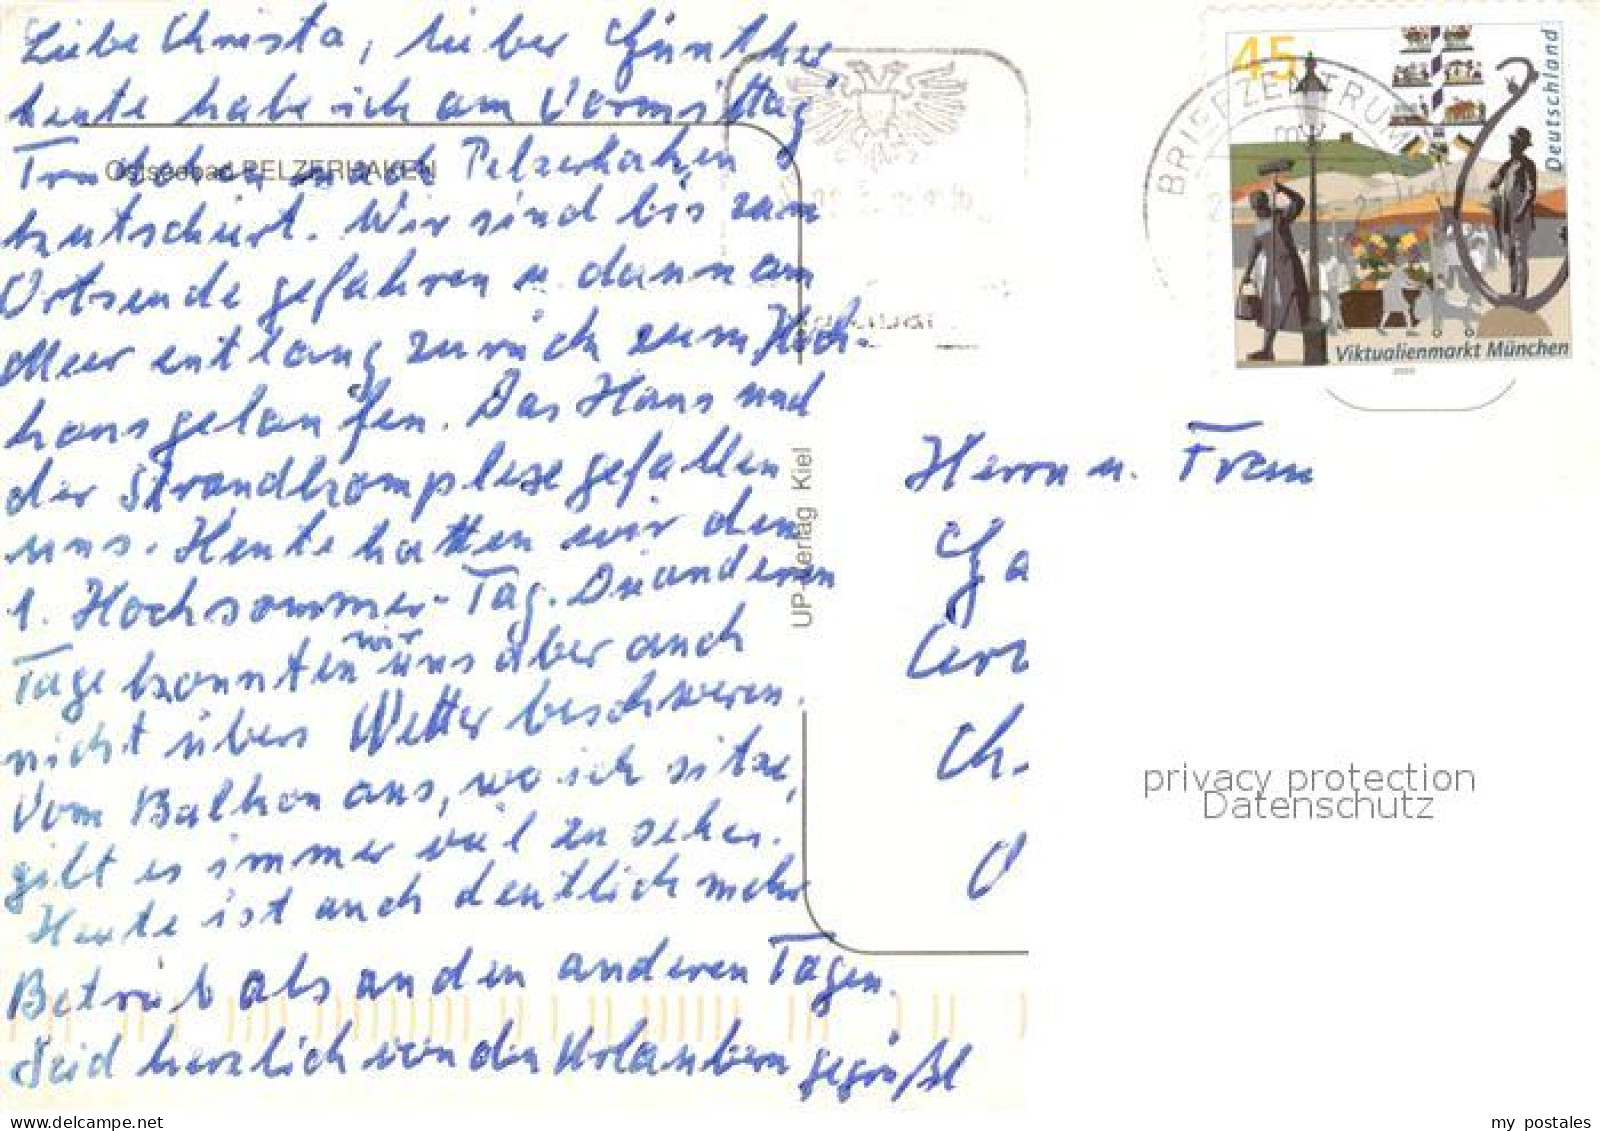 Liebe Christa, lieber Günther
heute habe ich am Vormittag
Trudchen nach Pelzerhaken
kutschiert. Wir sind bis zum
Ortsende gefahren u. dann am
Meer entlang zurück zum Hoch-
haus gelaufen. Das Haus und
der Strandkomplexe gefallen
uns. Heute hatten wir den
1. Hochsommer-Tag. Die anderen
Tage konnten wir uns aber auch
nicht übers Wetter beschweren.
Vom Balkon aus, wo ich sitze,
gibt es immer viel zu sehen.
Heute ist auch deutlich mehr
Betrieb als an den anderen Tagen.
Seid herzlich von den Urlaubern gegrüßt
Ostseebad PELZERHAKEN
UP-Verlag Kiel
BRIEFZENTRUM
45
Deutschland
Viktualienmarkt München
2003
Herrn u. Frau
Ga
Ch.
privacy protection
Datenschutz
my postales
delcampe.net